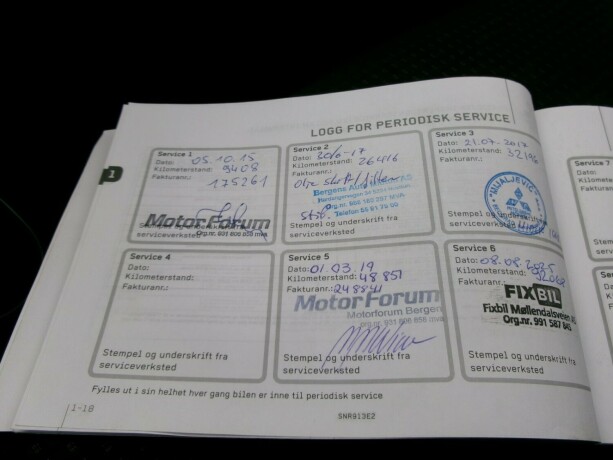 LOGG FOR PERIODISK SERVICE
1
Service 1
Dato: 05.10.15
Kilometerstand: 9408
Fakturanr.: 175261
MotorForum
Stempel og underskrift fra
serviceverksted
Service 2
Dato: 20/6-17
Kilometerstand: 26416
Fakturanr.:
Olje skift / filter
Telefon 55 91 74 00
Stempel og underskrift fra
serviceverksted
Service 3
Dato: 21.07-2017
Kilometerstand:
Fakturanr.:
Stempel og
serviceverk
Service 4
Dato:
Kilometerstand:
Fakturanr.:
Stempel og underskrift fra
serviceverksted
Service 5
Dato: 01.03.19
Kilometerstand: 48851
Fakturanr.: 248841
MotorForum
Motorforum Bergen
Stempel og underskrift fra
serviceverksted
Service 6
Dato: 08.08.2025
Kilometerstand:
Fakturanr.:
FIXBIL
Fixbil Møllendalsveien
Org.nr. 991 587 845
Stempel og underskrift fra
serviceverksted
Service 7
Fylles ut i sin helhet hver gang bilen er inne til periodisk service
1-18
SNR913E2